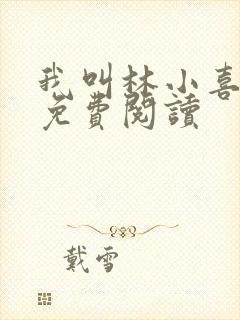 我叫林小喜
免費閱讀
戴雪